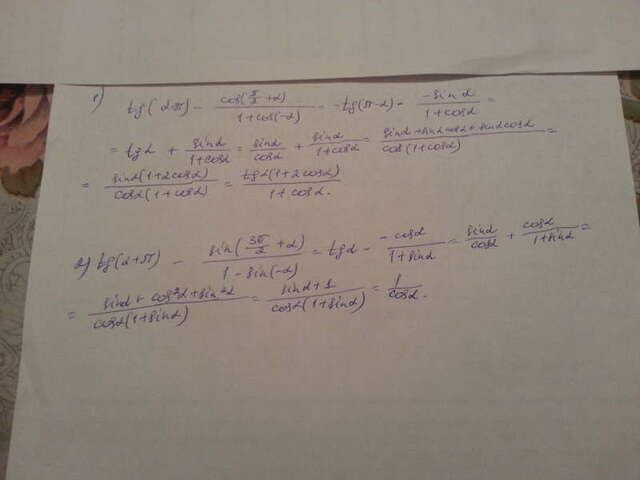 1)
tg(α-π) - cos(π/2+α)/(1+cos(-α)) = -tg(π-α) - (-sinα)/(1+cosα) =
= tgα + sinα/(1+cosα) = sinα/cosα + sinα/(1+cosα) = (sinα+sinαcosα+sinαcosα)/(cos(1+cosα)) =
= sinα(1+2cosα)/(cosα(1+cosα)) = tgα(1+2cosα)/(1+cosα).
2) tg(α+π) - sin(3π/2+α)/(1-sin(-α)) = tgα - (-cosα)/(1+sinα) = sinα/cosα + cosα/(1+sinα) =
= (sinα+cos²α+sin²α)/(cosα(1+sinα)) = (sinα+1)/(cosα(1+sinα)) = 1/cosα.